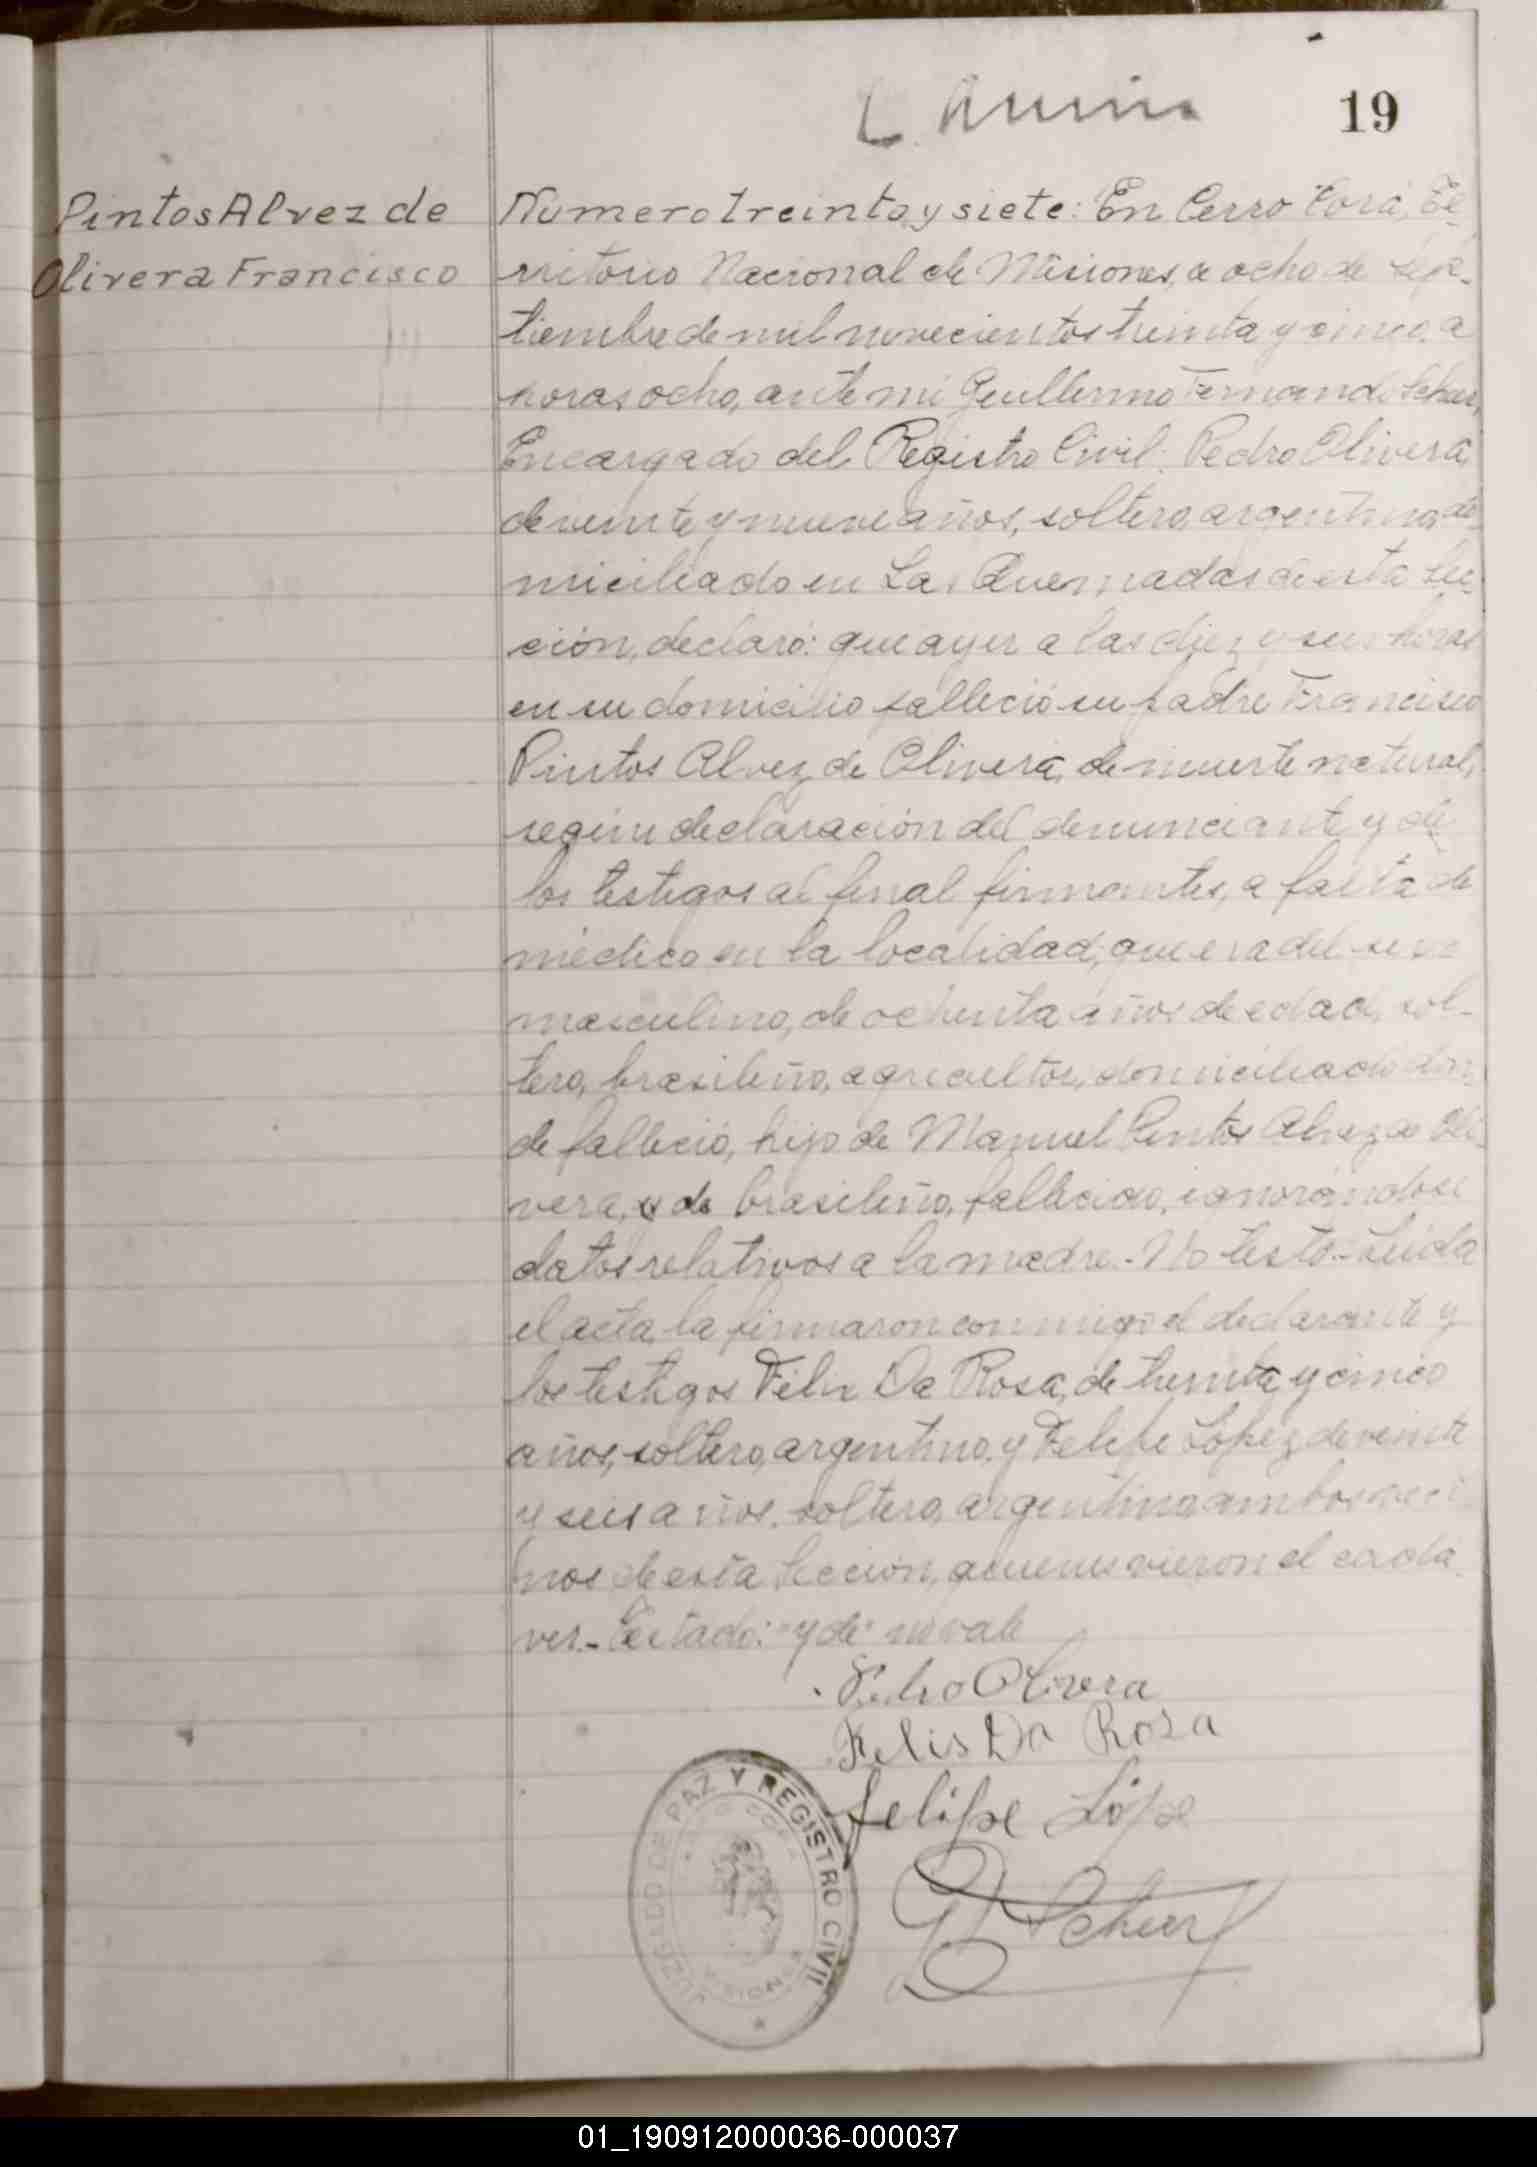 19
Pintos Alvez de
Olivera Francisco
Numero treinta y siete: En Cerro Corá, Te-
rritorio Nacional de Misiones, a ocho de Sep-
tiembre de mil novecientos treinta y cinco, a
horas ocho, ante mi Guillermo Fernando Scheer,
Encargado del Registro Civil: Pedro Olivera,
de veinte y nueve años, soltero, argentino, do-
miciliado en Las Quemadas de esta Sec-
ción, declaró: que ayer a las diez y seis horas
en su domicilio falleció su padre Francisco
Pintos Alvez de Olivera, de muerte natural,
según declaración del denunciante y de
los testigos al final firmantes, a falta de
médico en la localidad; que era del sexo
masculino, de ochenta años de edad, sol-
tero, brasileño, agricultor, domiciliado don-
de falleció, hijo de Manuel Pintos Alvez de Oli-
vera, y de brasileño, fallecido, ignorándose
datos relativos a la madre.- No testó.- Leida
el acta, la firmaron conmigo el declarante y
los testigos Felix Da Rosa, de treinta y cinco
años, soltero, argentino, y Felipe López, de veinte
y seis años, soltero, argentino, ambos veci-
nos de esta Sección, quienes vieron el cadá-
ver.- Testado: "y de" no vale
Pedro Olivera
Felis Da Rosa
felipe Lópe
G F Scheer
JUZGADO DE PAZ Y REGISTRO CIVIL
MISIONES
01_190912000036-000037